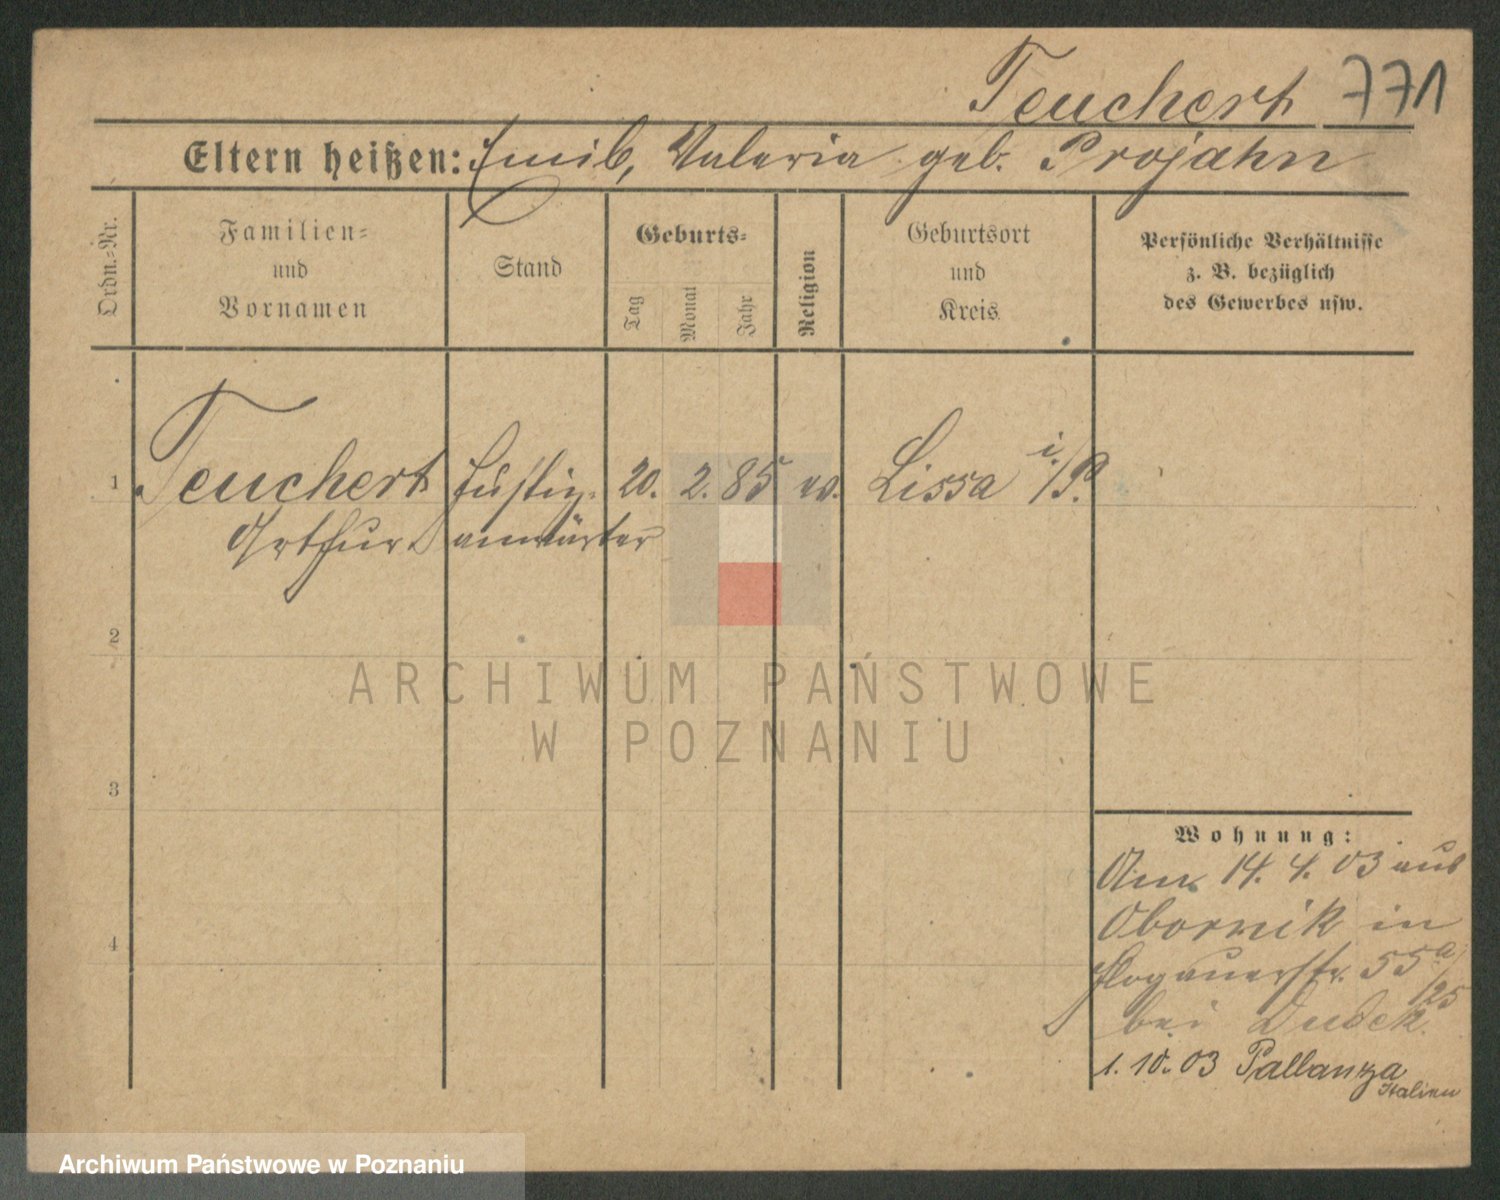 Teuchert 771
Eltern heißen: Emil, Valeria geb. Projahn
Ordn.-Nr.
Familien-
und
Vornamen
Stand
Geburts-
Tag
Monat
Jahr
Religion
Geburtsort
und
Kreis
Persönliche Verhältnisse
z. B. bezüglich
des Gewerbes usw.
1 Teuchert Justiz- 20. 2. 85 ev. Lissa i./P.
Arthur anwärter
2
3
4
Wohnung:
Am 14. 4. 03 aus
Obornik in
Glogauerstr. 55a/
125
bei Dudek.
1. 10. 03 Pallanza
Italien
ARCHIWUM PAŃSTWOWE
W POZNANIU
Archiwum Państwowe w Poznaniu